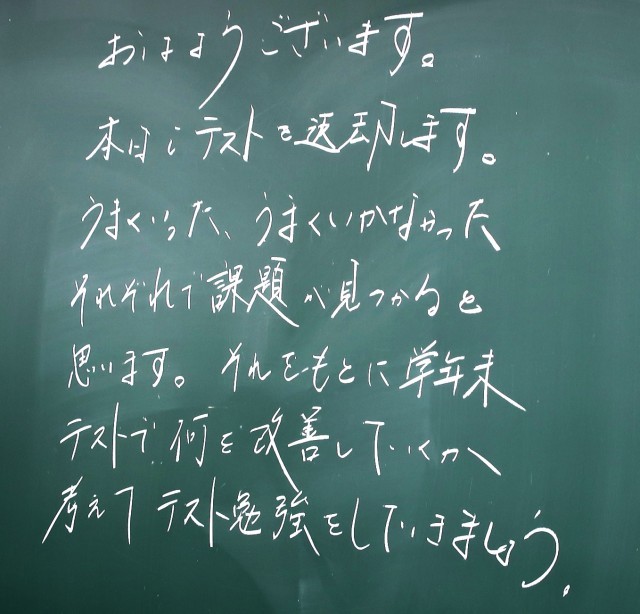 おはようございます。
本日はテストを返却します。
うまくいった、うまくいかなかった
それぞれで課題が見つかると
思います。それをもとに学年末
テストで何を改善していくか
考えてテスト勉強をしていきましょう。